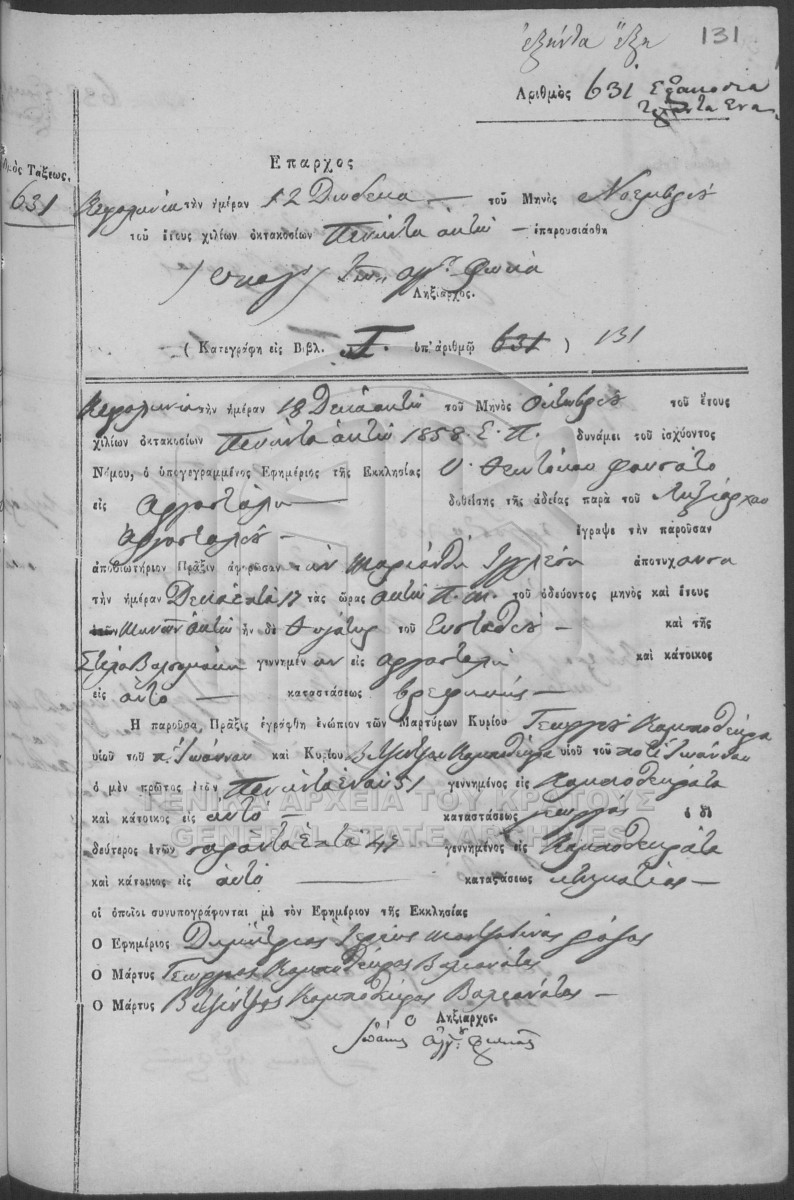 ἑξήντα ἕξη 131
Αριθμὸς 631 Εξακοσια
τριάντα Ενα
Αριθμὸς Τάξεως.
631
Επαρχος
Κεφαλληνία τὴν ἡμέραν 12 Δώδεκα τοῦ Μηνὸς Νοεμβρίου
τοῦ ἔτους χιλίων ὀκτακοσίων Πενήντα ὀκτώ ἐπαρουσιάσθη
Φωκᾶ
Ληξίαρχος.
( Κατεγράφη εἰς Βιβλ. Γ. ὑπ' ἀριθμῷ 631 ) 131
Κεφαλληνία τὴν ἡμέραν 18 Δεκαοκτώ τοῦ Μηνὸς Οκτωβρίου τοῦ ἔτους
χιλίων ὀκτακοσίων Πενήντα ὀκτώ 1858. Ε. Π. δυνάμει τοῦ ἰσχύοντος
Νόμου, ὁ ὑπογεγραμμένος Ἐφημέριος τῆς Ἐκκλησίας Υ. Θεοτόκου
εἰς Αργοστόλι δοθείσης τῆς ἀδείας παρὰ τοῦ Ληξιάρχου
Αργοστολίου ἔγραψε τὴν παροῦσαν
ἀποβιωτήριον Πρᾶξιν ἀφορῶσαν τὴν Μαριάνθη Ιγγλέση ἀποτυχουσα
τὴν ἡμέραν Δεκαεπτά 17 τὰς ὥρας ὀκτώ Π. Μ. τοῦ ὁδεύοντος μηνὸς καὶ ἔτους
Μηνῶν ὀκτώ ἦν δὲ θυγάτηρ τοῦ Ευσταθίου καὶ τῆς
Στέλα Βαλσαμάκη γεννημένην εἰς Αργοστόλι καὶ κάτοικος
εἰς αὐτό καταστάσεως βρεφικῆς
Η παροῦσα Πρᾶξις ἐγράφθη ἐνώπιον τῶν Μαρτύρων Κυρίου Γεωργίου Καμποθέκρα
υἱοῦ τοῦ π. Ἰωάννου καὶ Κυρίου Βιτζέντζου Καμποθέκρα υἱοῦ τοῦ ποτέ Ἰωάννου
ὁ μὲν πρῶτος ἐτῶν Πενήντα ἕνα 51 γεννημένος εἰς Καμποθεκράτα
καὶ κάτοικος εἰς αὐτό καταστάσεως γεωργος ὁ δὲ
δεύτερος ἐτῶν σαραντα ἑπτά 47 γεννημένος εἰς Καμποθεκράτα
καὶ κάτοικος εἰς αὐτό καταστάσεως κτηματίας
οἱ ὁποῖοι συνυπογράφονται μὲ τὸν Ἐφημέριον τῆς Ἐκκλησίας
Ο Ἐφημέριος Δημήτριος Ἱερεύς Ματζαβίνος
Ο Μάρτυς Γεωργιος Καμποθέκρας Βαλεονάτος
Ο Μάρτυς Βιτζέντζος Καμποθέκρας Βαλεονάτος
Ο Ληξίαρχος.
Φωκᾶς
ΓΕΝΙΚΑ ΑΡΧΕΙΑ ΤΟΥ ΚΡΑΤΟΥΣ
GENERAL STATE ARCHIVES